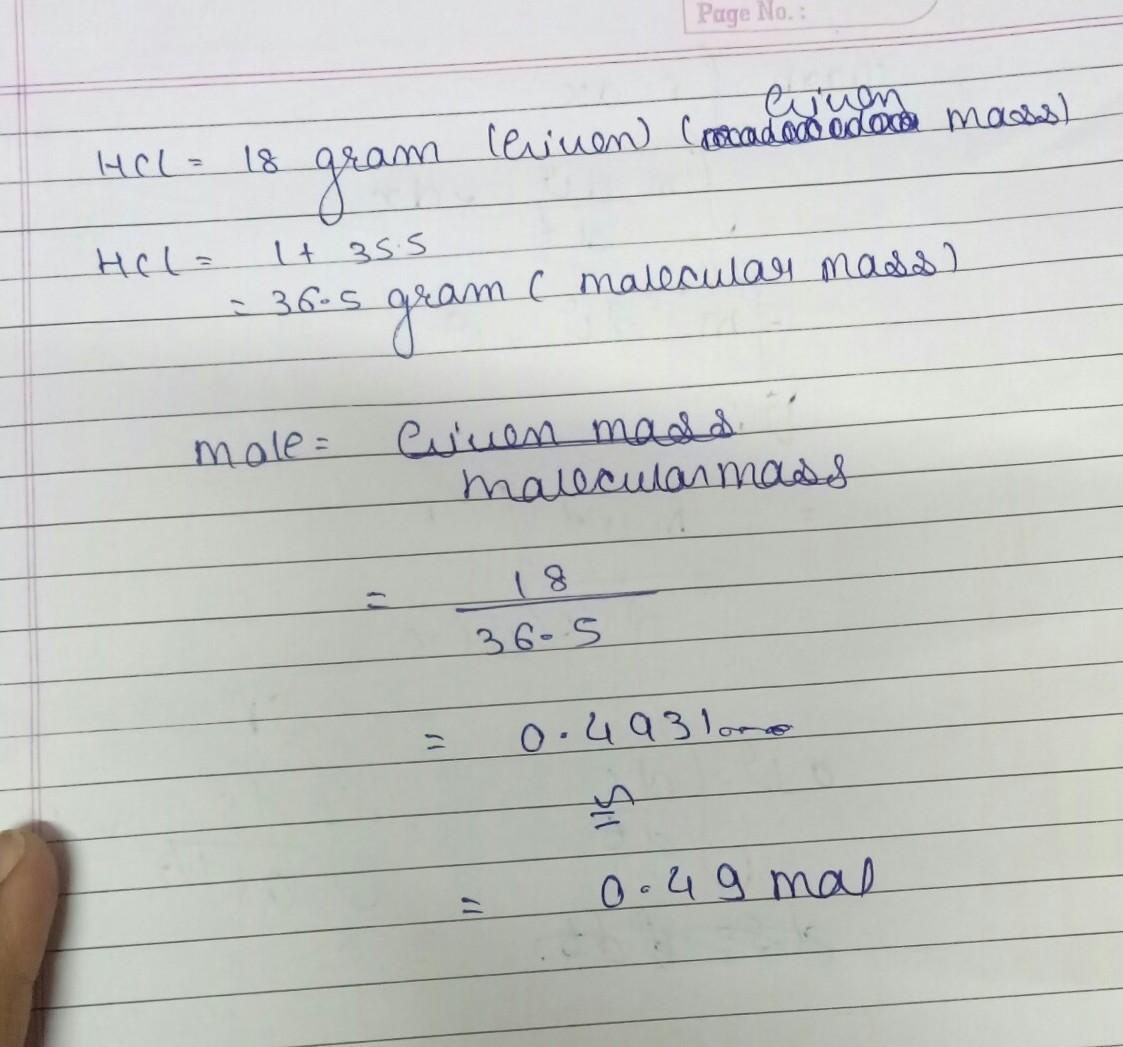 Page No. :
Given
HCl = 18 gram (Given) ( mass)
HCl = 1 + 35.5
= 36.5 gram ( malecular mass)
male = Given mass
malecular mass
= 18
36.5
= 0.4931
≅
= 0.49 mal